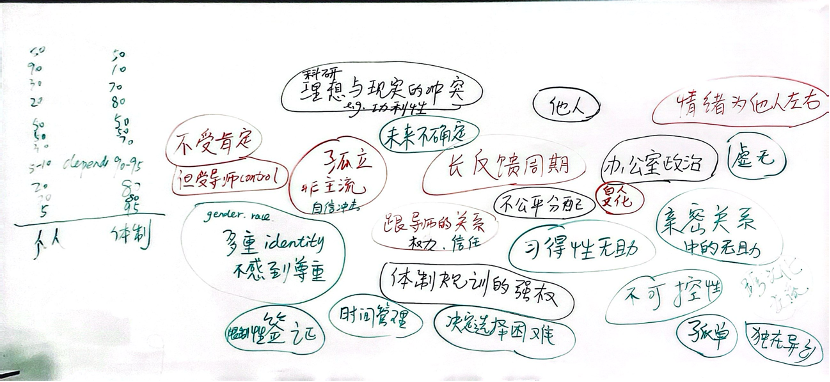 50 50
90 10
30 70
20 80
50 50
5-10 depends 90-95
20 80
5 95
个人 体制
科研
理想与现实的冲突
e.g. 功利性
他人
情绪为他人左右
不受肯定
但受导师control
孤立
非主流
自信冲击
未来不确定
长反馈周期
办公室政治
虚无
不公平分配
gender. race
多重 identity
不感到尊重
跟导师的关系
权力、信任
习得性无助
亲密关系
中的无助
体制规训的强权
不可控性
签证
时间管理
决定选择困难
孤单
独在异乡